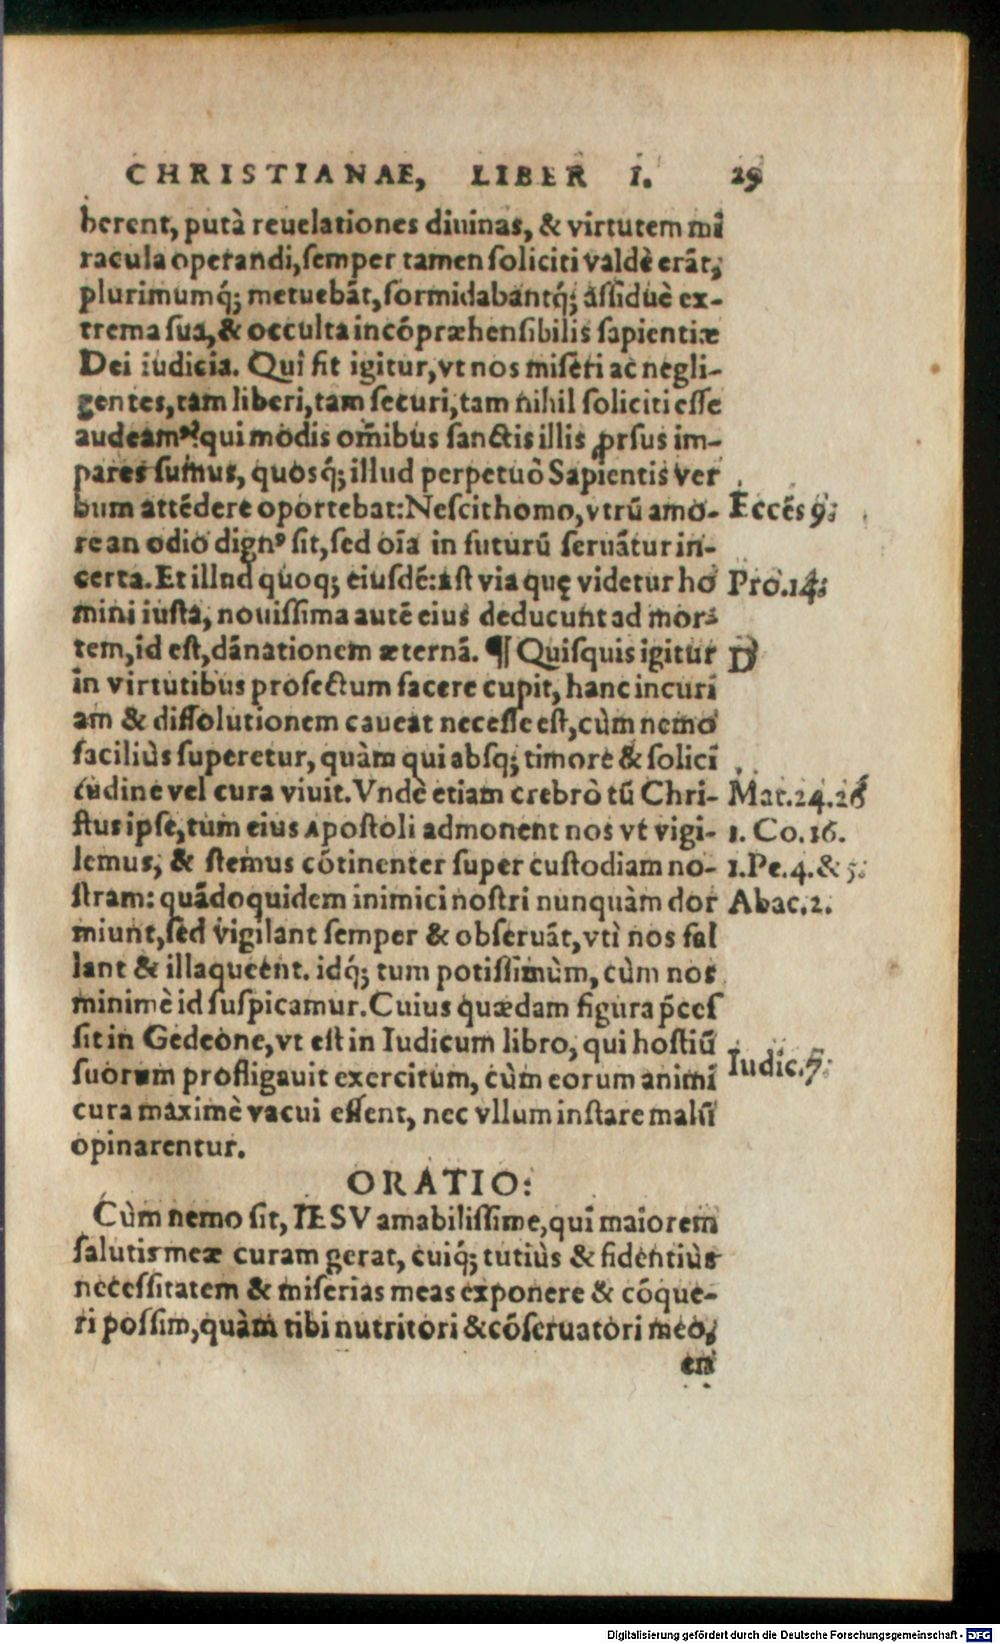 CHRISTIANAE, LIBER I. 29
berent, putà reuelationes diuinas, & virtutem mĩ
racula operandi, semper tamen soliciti valdè erãt,
plurimumq́; metuebãt, formidabantq́; assiduè ex-
trema sua, & occulta incõpræhensibilis sapientiæ
Dei iudicia. Quî fit igitur, vt nos miseri ac negli-
gentes, tam liberi, tam securi, tam nihil soliciti esse
audeamꝰ? qui modis om̃ibus sanctis illis ꝓrsus im-
pares sumus, quosq́; illud perpetuò Sapientis ver
bum attẽdere oportebat: Nescit homo, vtrũ amo-
re an odio dignꝰ sit, sed oĩa in futurũ seruãtur in-
certa. Et illnd quoq; eiusdẽ: Est via quę videtur ho
mini iusta, nouissima autẽ eius deducunt ad mor-
tem, id est, dãnationem æternã. ¶ Quisquis igitur
in virtutibus profectum facere cupit, hanc incuri
am & dissolutionem caueat necesse est, cùm nemo
faciliùs superetur, quàm qui absq; timore & solici
tudine vel cura viuit. Vndè etiam crebrò tũ Chri-
stus ipse, tum eius Apostoli admonent nos vt vigi-
lemus, & stemus cõtinenter super custodiam no-
stram: quãdoquidem inimici nostri nunquàm dor
miunt, sed vigilant semper & obseruãt, vti nos fal
lant & illaqueent. idq́; tum potissimùm, cùm nos
minimè id suspicamur. Cuius quædam figura p̃ces
sit in Gedeone, vt est in Iudicum libro, qui hostiũ
suorum profligauit exercitum, cùm eorum animi
cura maximè vacui essent, nec vllum instare malũ
opinarentur.
Eccẽs 9.
Pro. 14.
D
Mat. 24. 26
1. Co. 16.
1. Pe. 4. & 5.
Abac. 2.
Iudic. 7.
ORATIO:
Cùm nemo sit, IESV amabilissime, qui maiorem
salutis meæ curam gerat, cuiq́; tutiùs & fidentiùs
necessitatem & miserias meas exponere & cõque-
ri possim, quàm tibi nutritori & cõseruatori meo,
en
Digitalisierung gefördert durch die Deutsche Forschungsgemeinschaft - DFG